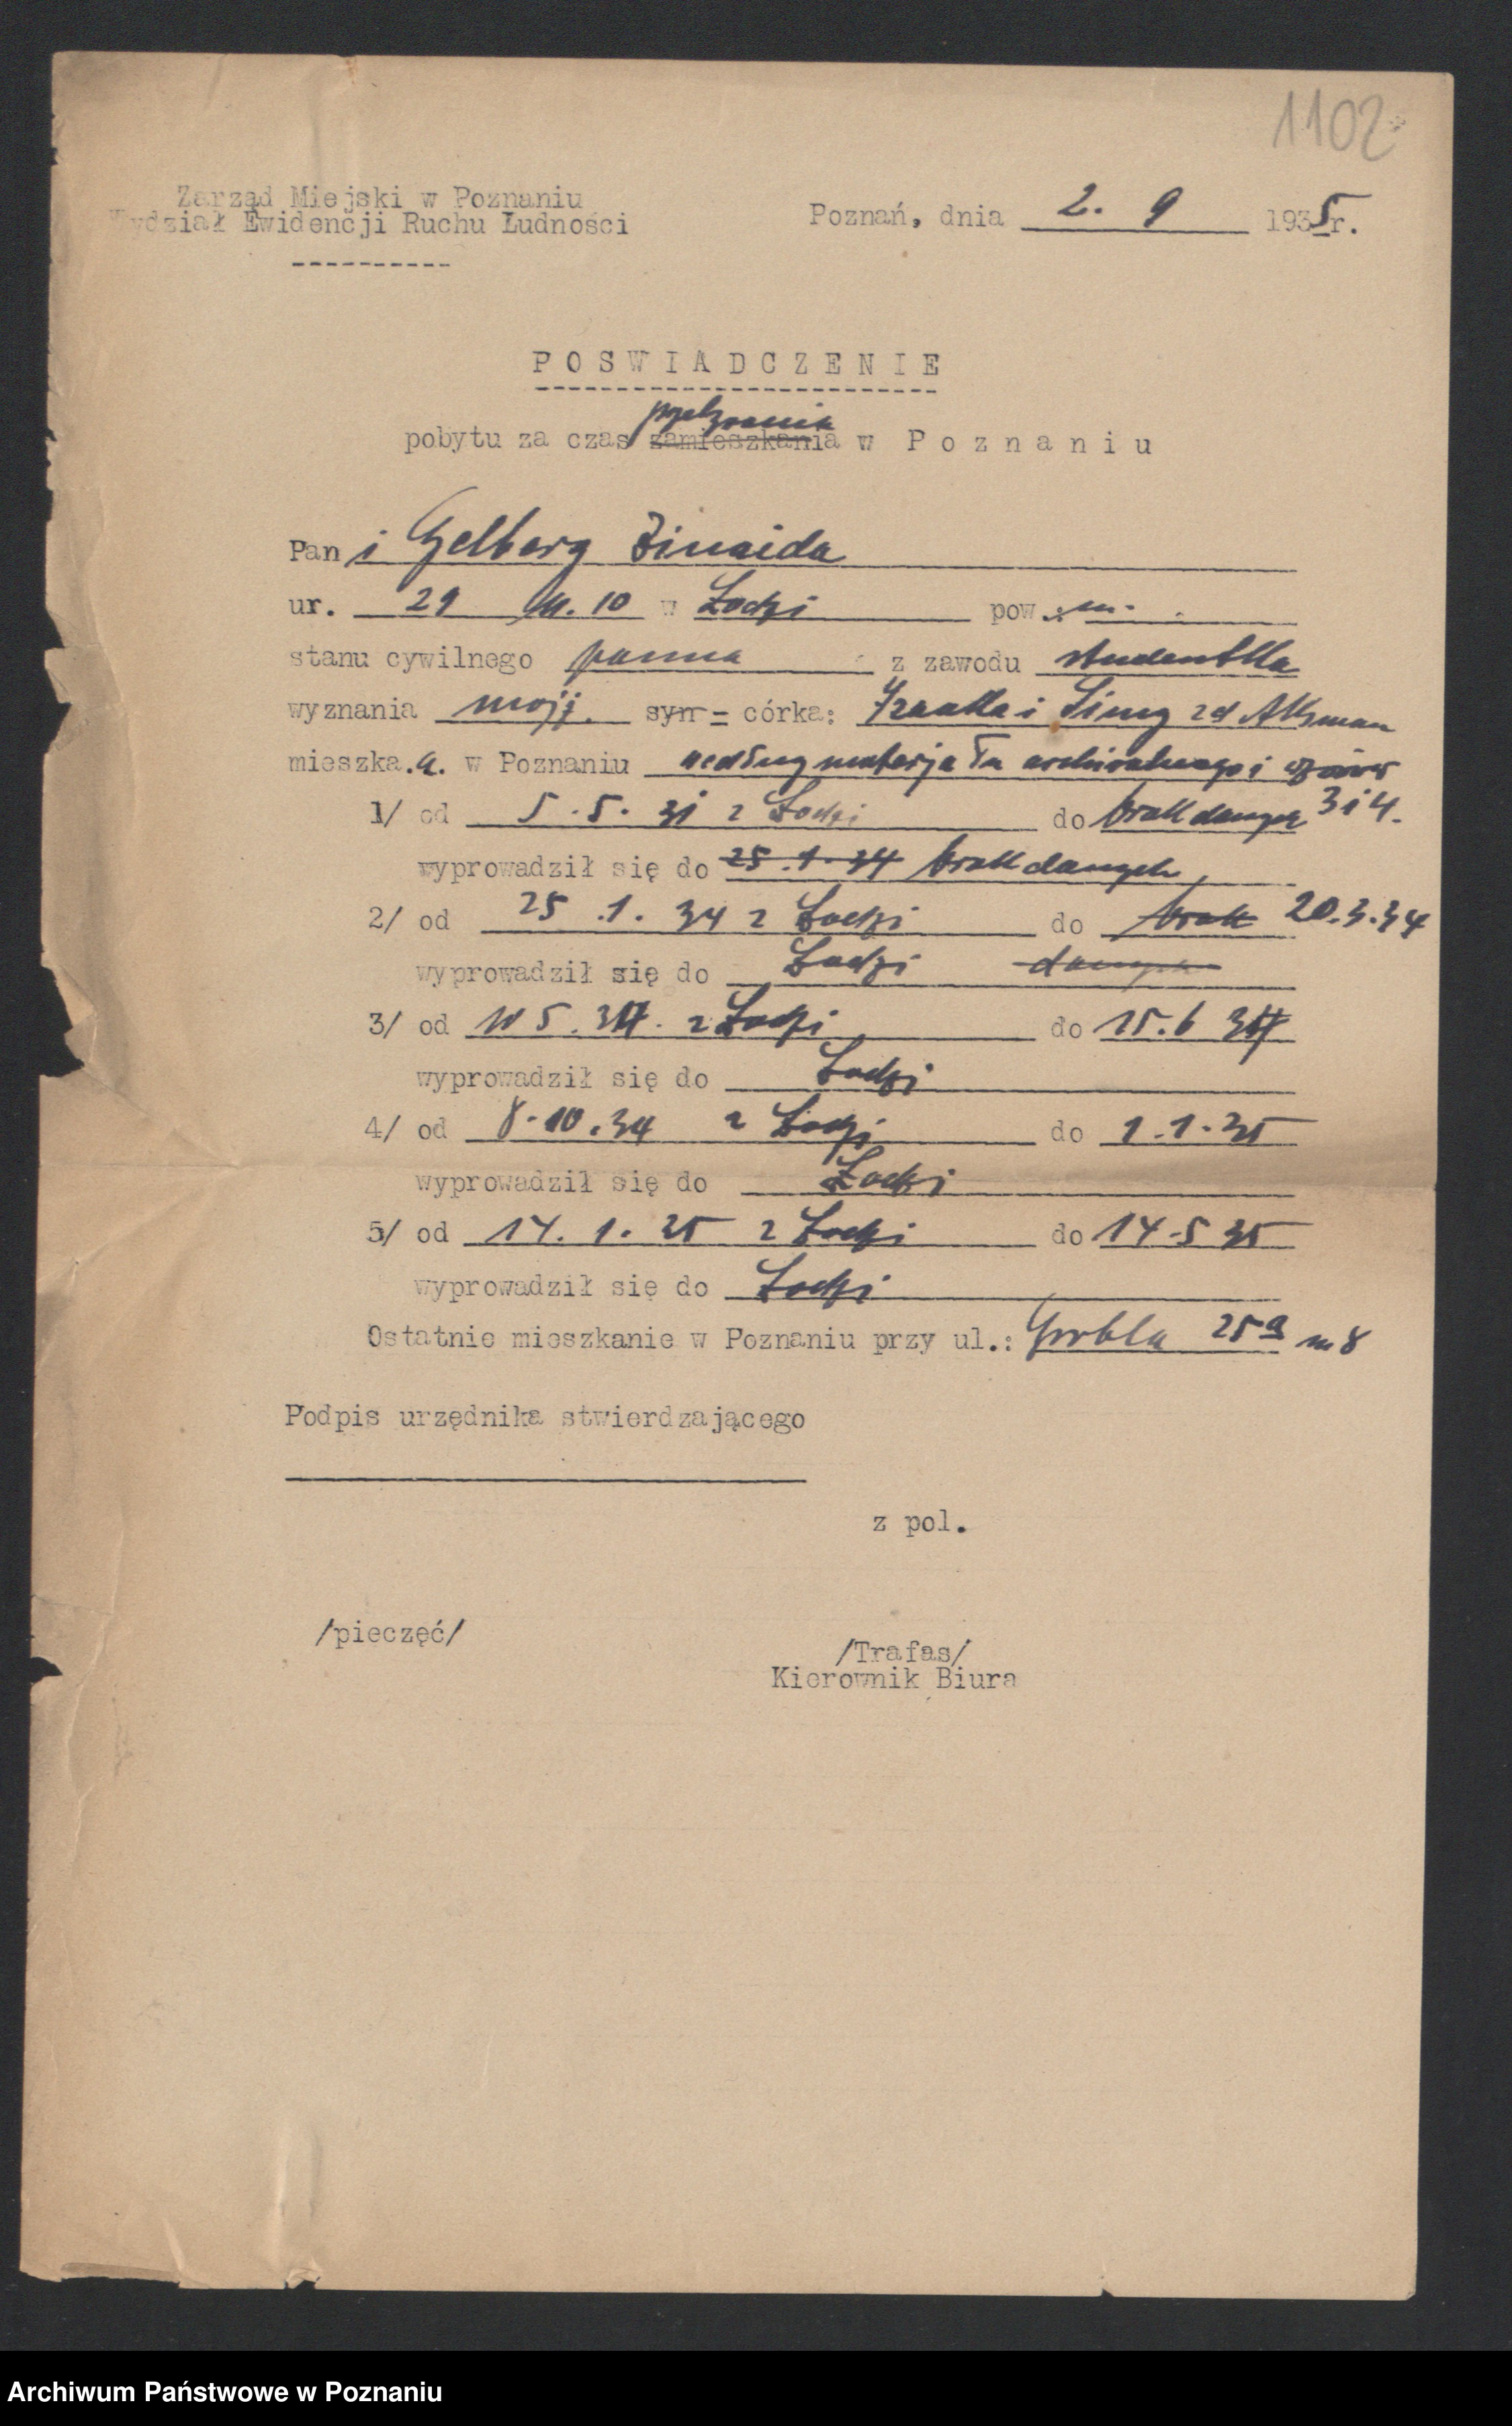 1102
Zarząd Miejski w Poznaniu
Wydział Ewidencji Ruchu Ludności
Poznań, dnia 2. 9 1935r.
POSWIADCZENIE
pobytu za czas zamieszkania w Poznaniu
Pani Gelberg Zinaida
ur. 29 10 w Łodzi pow. m.
stanu cywilnego panna z zawodu studentka
wyznania mojż. syn - córka: Izaaka i zd
mieszka.a. w Poznaniu według materjału archiwalnego i
1/ od 5.5. 31 z Łodzi do brak danych 3 i 4.
wyprowadził się do 25.1.34 brak danych
2/ od 25.1.34 z Łodzi do brak 20.3.34
wyprowadził się do Łodzi danych
3/ od 10 5. z Łodzi do 15.6
wyprowadził się do Łodzi
4/ od 8.10.34 z Łodzi do 1.1.35
wyprowadził się do Łodzi
5/ od 14.1.35 z Łodzi do 14.5 35
wyprowadził się do Łodzi
Ostatnie mieszkanie w Poznaniu przy ul.: Grobla 25a m 8
Podpis urzędnika stwierdzającego
z pol.
/pieczęć/
/Trafas/
Kierownik Biura
Archiwum Państwowe w Poznaniu